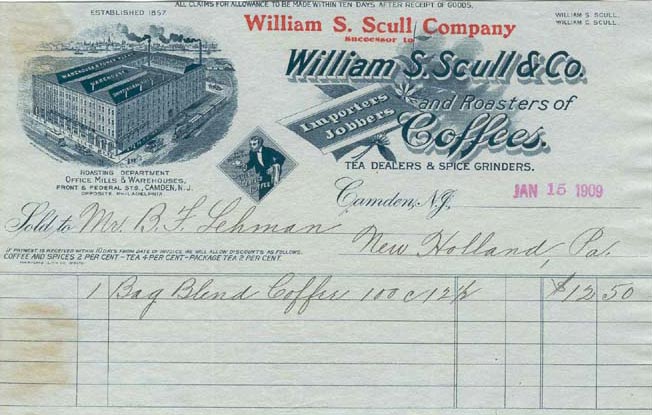 ALL CLAIMS FOR ALLOWANCE TO BE MADE WITHIN TEN DAYS AFTER RECEIPT OF GOODS.
ESTABLISHED 1857
WILLIAM S. SCULL.
WILLIAM C. SCULL.
William S. Scull Company
Successor to
William S. Scull & Co.
Importers
Jobbers
and Roasters of
Coffees.
TEA DEALERS & SPICE GRINDERS.
ROASTING DEPARTMENT
OFFICE MILLS & WAREHOUSES,
FRONT & FEDERAL STS., CAMDEN, N.J.
OPPOSITE PHILADELPHIA
Camden, N.J., JAN 15 1909
Sold to Mr. B. F. Lehman
New Holland, Pa.
IF PAYMENT IS RECEIVED WITHIN 10 DAYS FROM DATE OF INVOICE WE WILL ALLOW DISCOUNTS AS FOLLOWS.
COFFEE AND SPICES 2 PER CENT - TEA 4 PER CENT - PACKAGE TEA 2 PER CENT.
1 Bag Blend Coffee 100 c 12½ $12 50